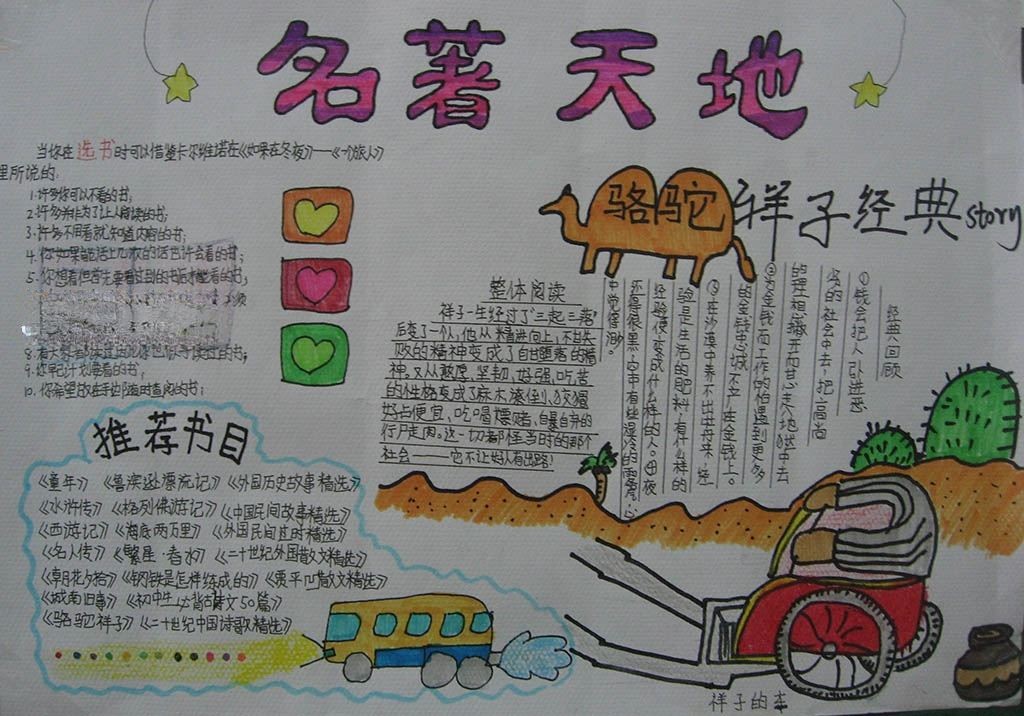 名著天地
当你在选书时可以借鉴卡尔维诺在《如果在冬夜》——《一个旅人》
里所说的:
1.许多你可以不看的书;
2.许多并非为了让人阅读的书;
3.许多不用看就知道内容的书;
4.你如果能活上几次的话也许会看的书;
5.你想看但首先要看过别的书后才能看的书;
9.你早已计划要看的书;
10.你希望放在手边随时查阅的书;
推荐书目
《童年》《鲁滨逊漂流记》《外国历史故事精选》
《水浒传》《格列佛游记》《中国民间故事精选》
《西游记》《海底两万里》《外国民间故时精选》
《名人传》《繁星·春水》《二十世纪外国散文精选》
《朝花夕拾》《钢铁是怎样练成的》《贾平凹散文精选》
《城南旧事》《初中生必背古诗文50篇》
《骆驼祥子》《二十世纪中国诗歌精选》
骆驼祥子经典story
整体阅读
祥子一生经过了“三起三落”
后变了一个人,他从精进向上,不甘失
败的精神变成了自甘堕落的精
神,又从敦厚,坚韧,好强,吃苦
的性格变成了麻木潦倒,狡猾
好占便宜,吃喝嫖赌,自暴自弃的
行尸走肉。这一切都怪当时的那个
社会——它不让好人有出路!
经典回顾
①钱会把人引进恶
劣的社会中去,把高尚
的理想撇开而甘心走入地狱中去
②为金钱而工作的怕遇到更多
的金钱忠诚不立在金钱上。
③在沙漠中养不出牡丹来,经
验是生活的肥料有什么样的
经验便变成什么样的人。④夜
还得很黑,空中有些湿冷的雾气心
中觉得渺。
祥子的车